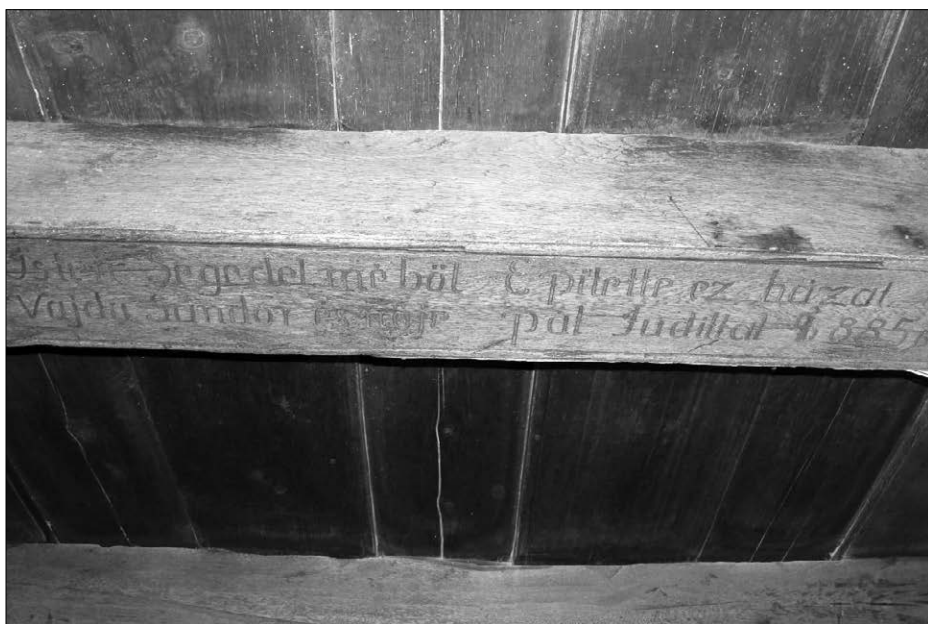 Isten Segedelméböl Épitette ez házat
Vajda Sándor és neje Pál Judittal 1885